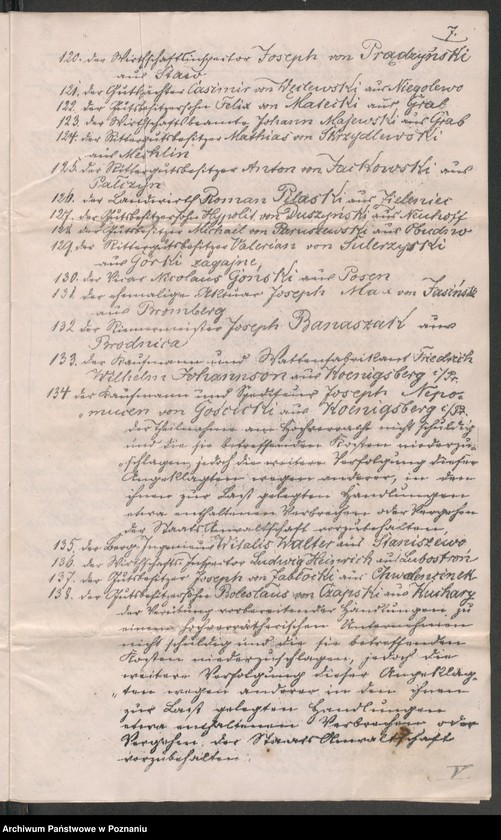 7.
120. der Wirthschaftsinspector Joseph von Prądzyński
aus Staw
121. der Gutspächter Casimir von Węclewski aus Niegolewo
122. der Gutsbesitzersohn Felix von Matecki aus Grab
123. der Wirthschaftsbeamte Johann Majewski aus Grab
124. der Rittergutsbesitzer Mathias von Skrzydlewski
aus Mechlin
125. der Rittergutsbesitzer Anton von Jackowski aus
Palczyn
126. der Landwirth Roman Pilaski aus Zieleniec
127. der Gutsbesitzersohn Hypolit von Duszyński aus Neuhoff
128. der Gutsbesitzer Michael von Paruszewski aus Obudno
129. der Rittergutsbesitzer Valerian von Sulerzyski
aus Górki zagajne,
130. der Vicar Nicolaus Goński aus Posen
131 der ehemalige Aktuar Joseph Max von Jasiński
aus Bromberg
132 der Riemermeister Joseph Banaszak aus
Brodnica
133. der Kaufmann und Wattenfabrikant Friedrich
Wilhelm Johannson aus Koenigsberg i/Pr.
134 der Kaufmann und Spediteur Joseph Nepo-
mucen von Gościcki aus Koenigsberg i/Pr.
der Theilnahme am Hochverrath nicht schuldig
und die sie betreffenden Kosten niederzu-
schlagen, jedoch die weitere Verfolgung dieser
Angeklagten wegen anderer, in den
ihnen zur Last gelegten Handlungen
etwa enthaltenen Verbrechen oder Vergehen
der Staats Anwaltschaft vorzubehalten,
135. der Berg Ingenieur Vitalis Walter aus Staniszewo
136. der Wirthschafts Inspector Ludwig Heinrich aus Lubostroń
137. der Gutsbesitzer Joseph von Jabłocki aus
138. der Gutsbesitzersohn Boleslaus von Czapski aus Kuchary
der Verübung vorbereitender Handlungen zu
einem hochverrätherischen Unternehmen
nicht schuldig und die sie betreffenden
Kosten niederzuschlagen, jedoch die
weitere Verfolgung dieser Angeklag-
ten wegen anderer in den ihnen
zur Last gelegten Handlungen
etwa enthaltenen Verbrechen oder
Vergehen der Staats Anwaltschaft
vorzubehalten.
V
Archiwum Państwowe w Poznaniu